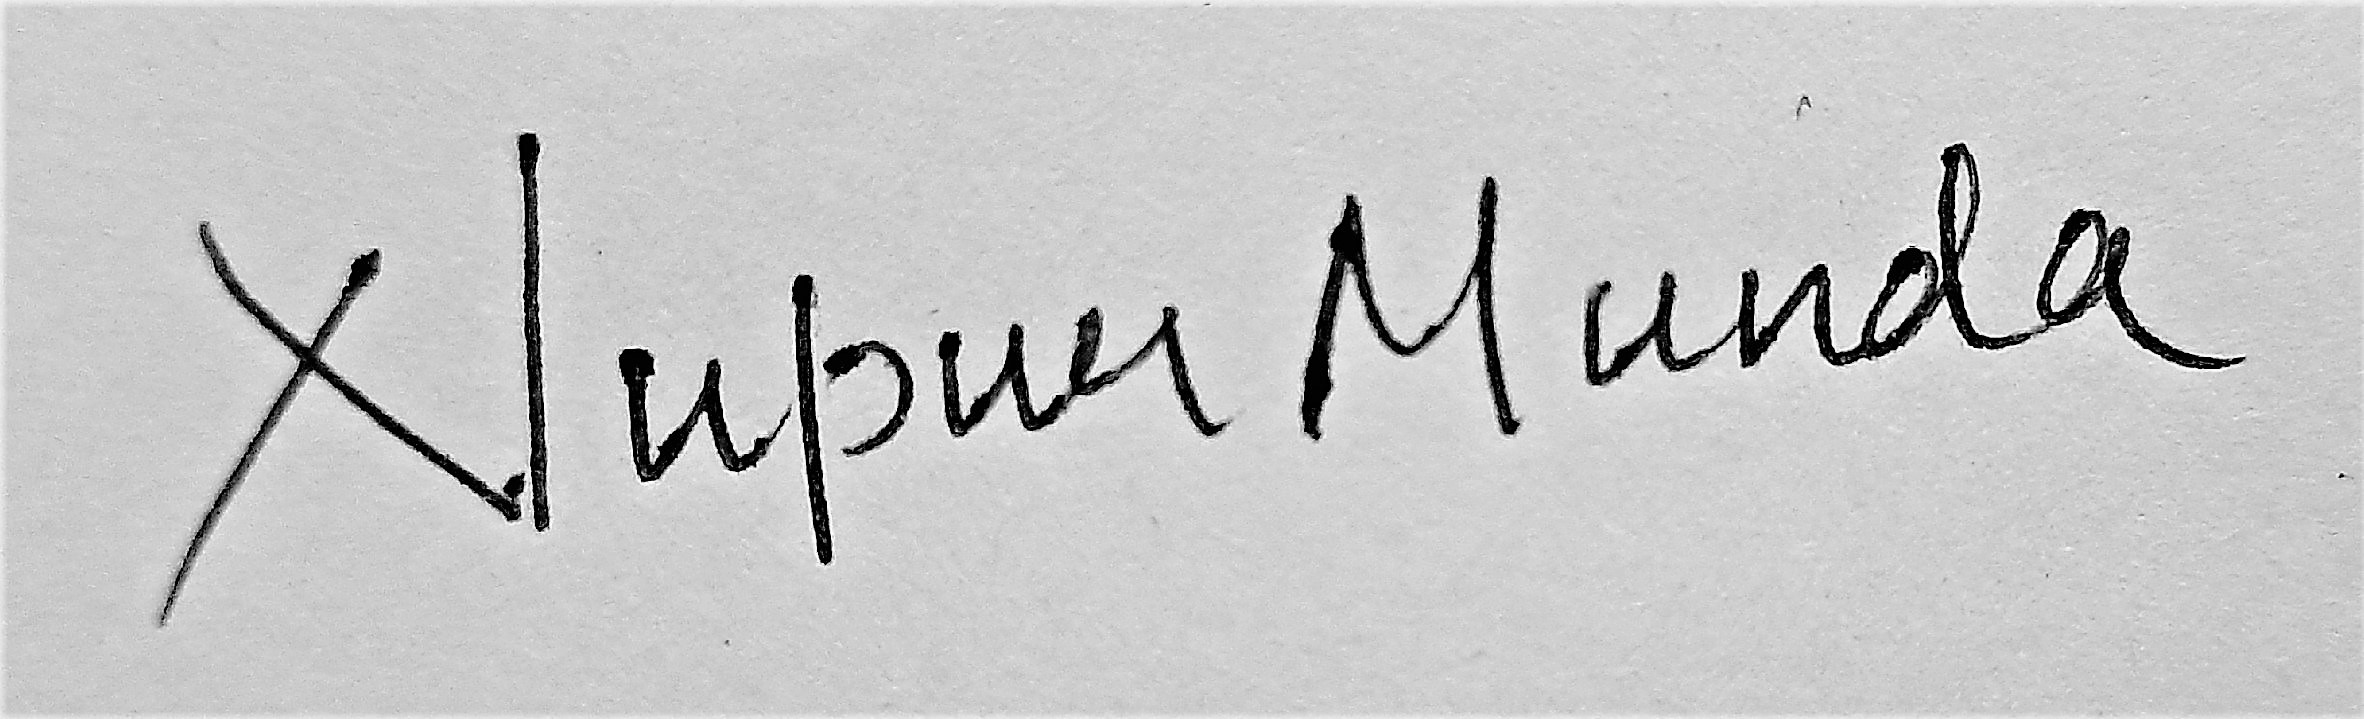 Nupur Munda